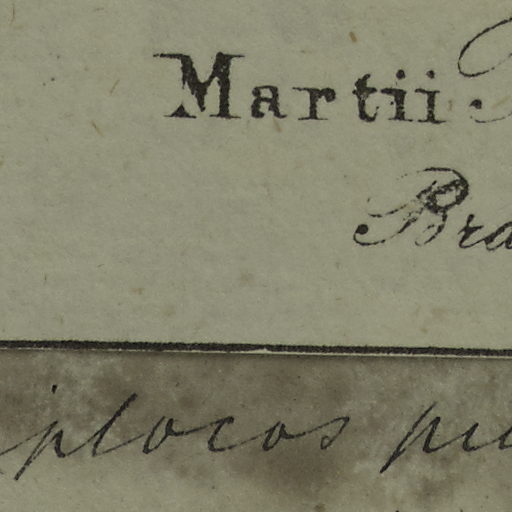 Martii
Bra
iplocos pu